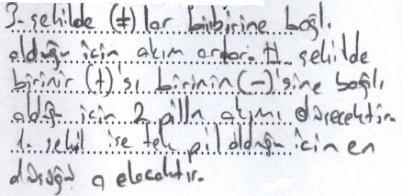 3. şekilde (+) lar birbirine bağlı
olduğu için akım artar. II. şekilde
birinin (+)'sı birinin (-)'sine bağlı
olduğu için 2 pilin akımı düşecektir.
1. şekil ise tek pil olduğu için en
düşüğü o olacaktır.